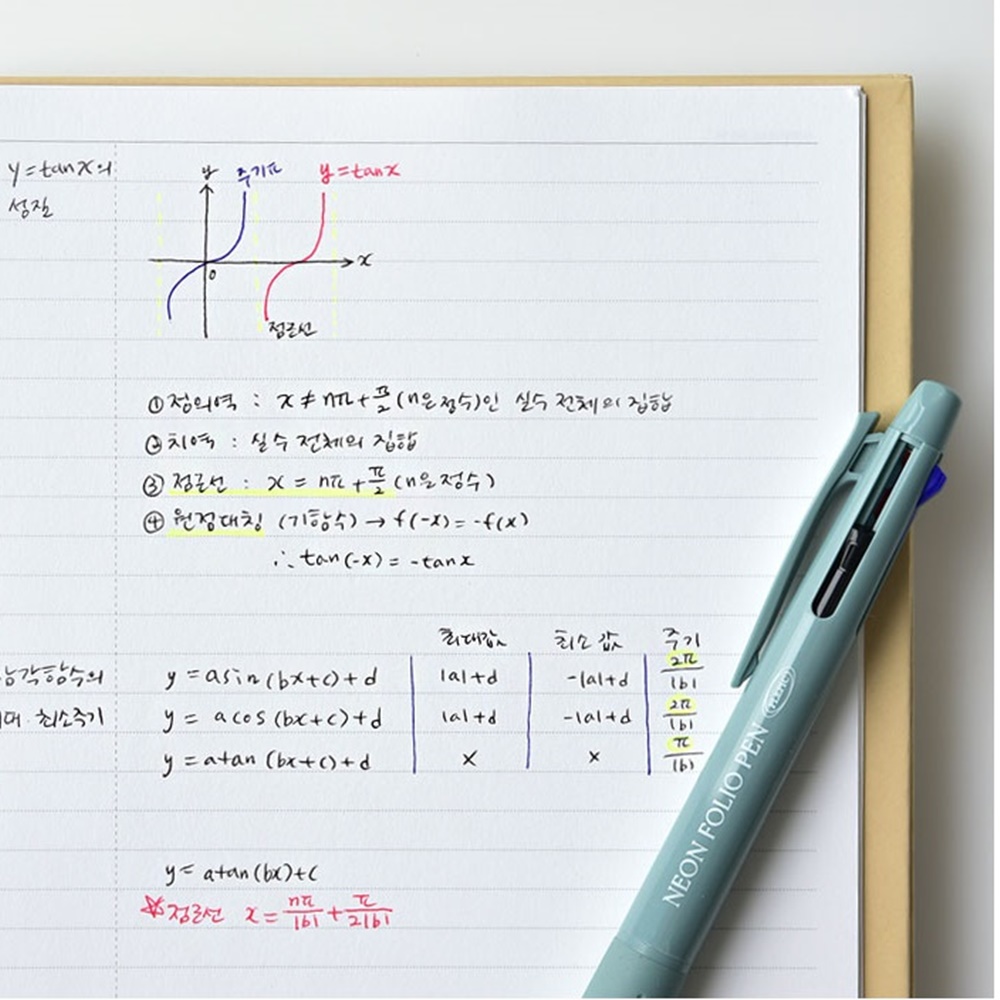 y = tan x의
성질
y 주기π y = tan x
x
0
점근선
① 정의역 : x ≠ nπ + π/2 (n은 정수)인 실수 전체의 집합
② 치역 : 실수 전체의 집합
③ 점근선 : x = nπ + π/2 (n은 정수)
④ 원점대칭 (기함수) → f(-x) = -f(x)
∴ tan(-x) = -tan x
최대값 최소값 주기
삼각함수의 y = asin(bx+c)+d |a|+d -|a|+d 2π/|b|
최소주기 y = acos(bx+c)+d |a|+d -|a|+d 2π/|b|
y = atan(bx+c)+d × × π/|b|
y = atan(bx)+c
☆점근선 x = nπ/|b| + π/2|b|
NEON FOLIO PEN